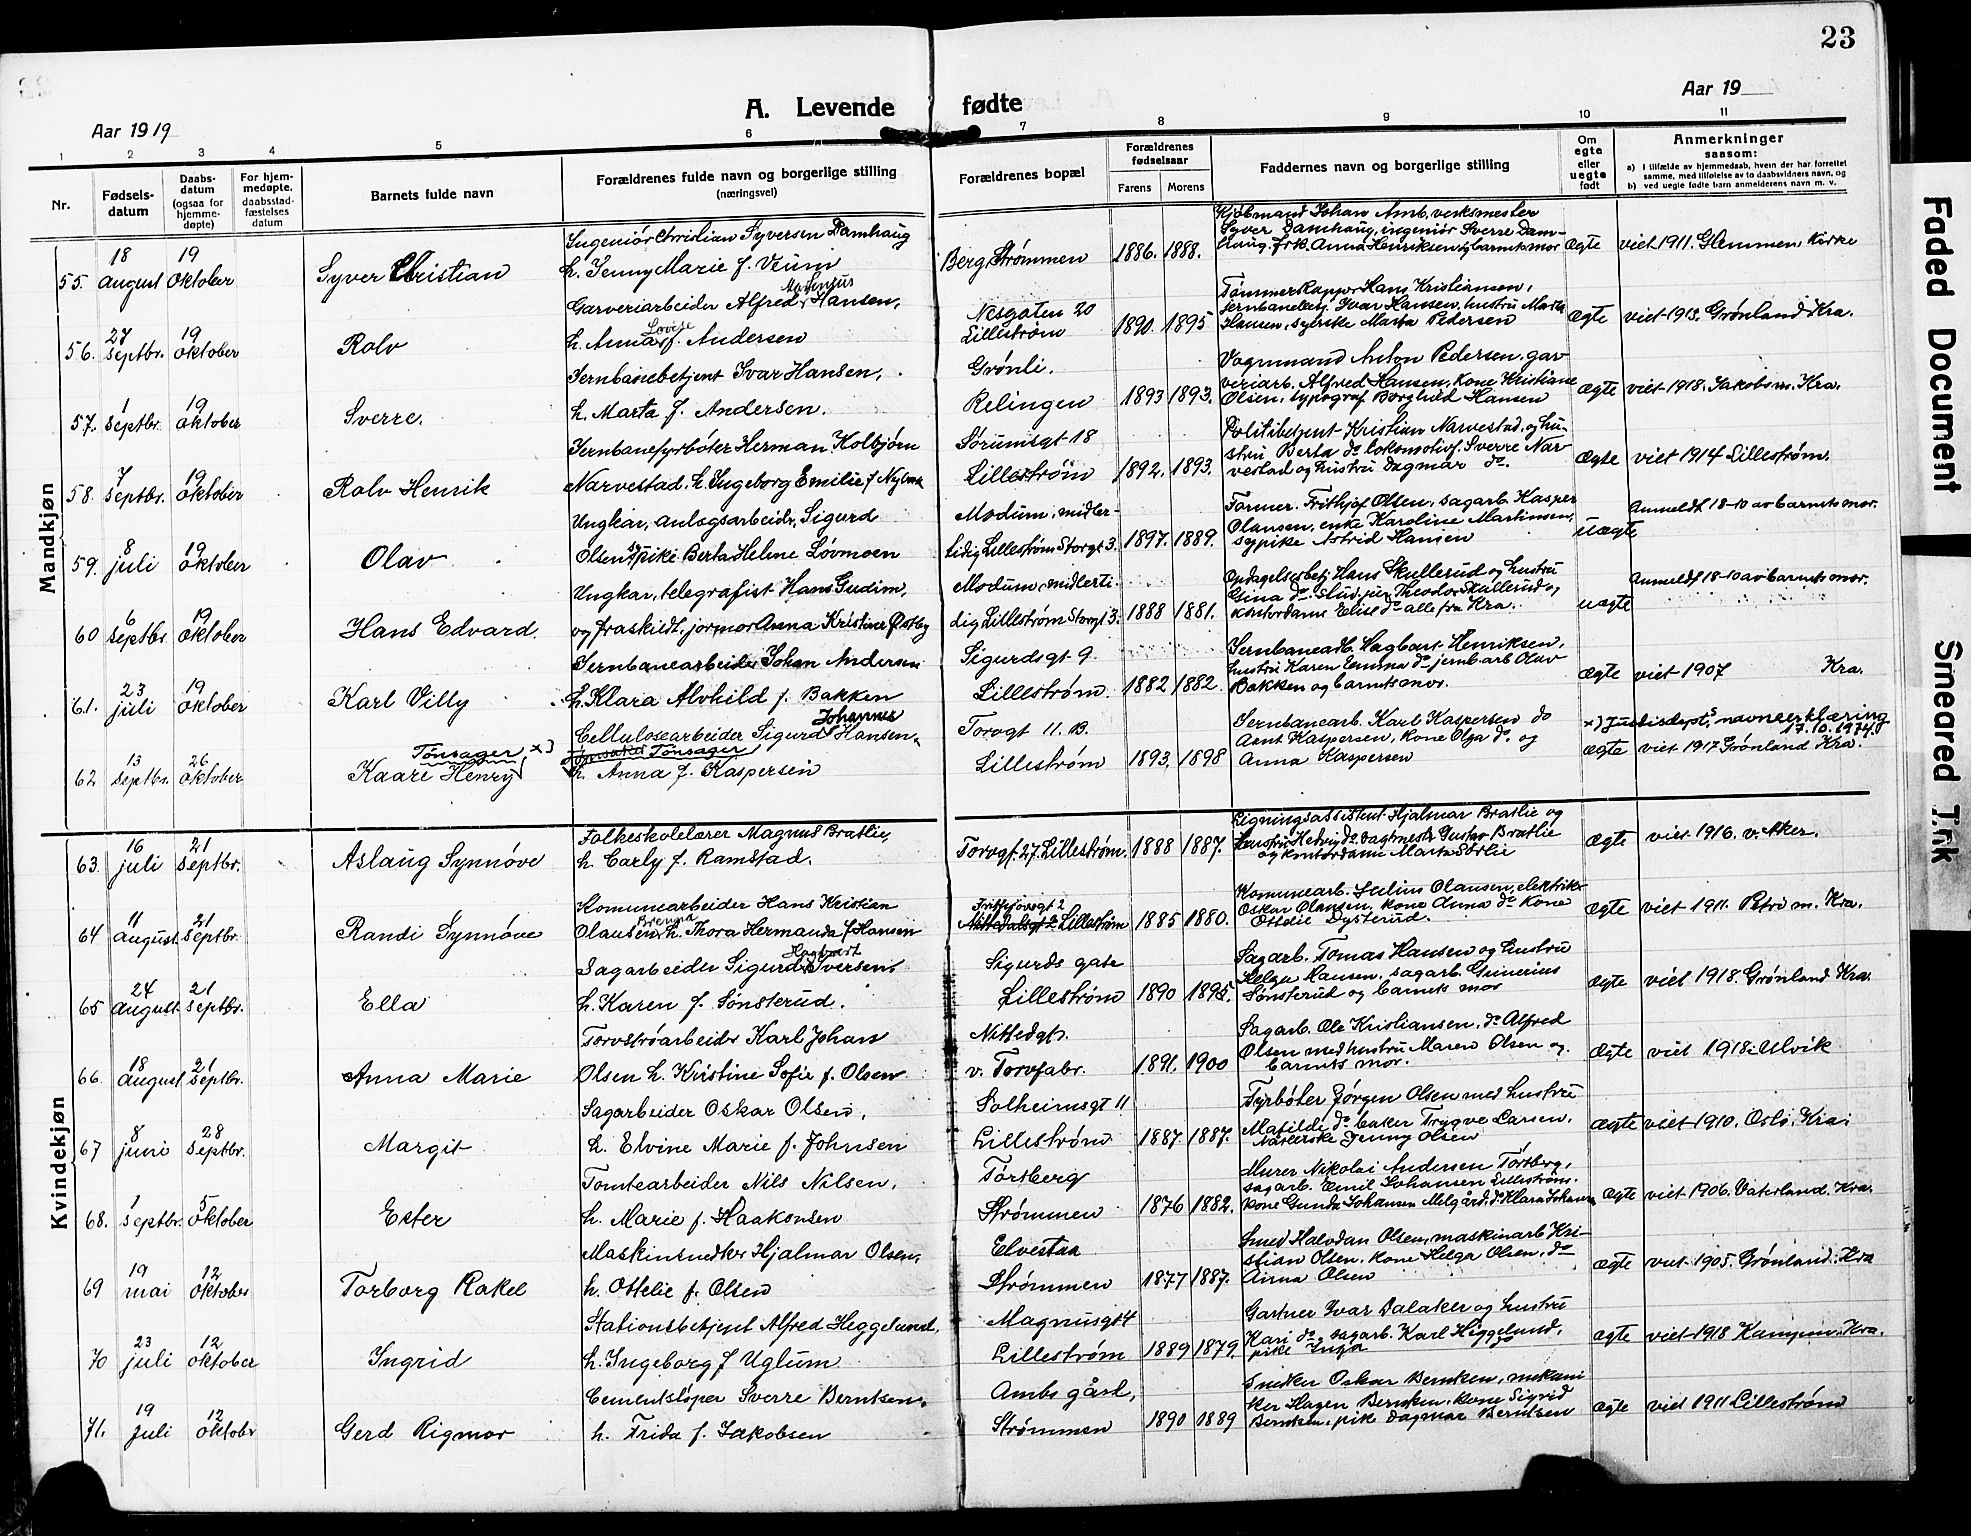 23
A. Levende fødte
Aar 1919
Aar 19
1 2 3 4 5 6 7 8 9 10 11
Nr.
Fødsels-
datum
Daabs-
datum
(ogsaa for
hjemme-
døpte)
For hjem-
medøpte,
daabsstad-
fæstelses
datum
Barnets fulde navn
Forældrenes fulde navn og borgerlige stilling
(næringsvei)
Forældrenes bopæl
Forældrenes
fødselsaar
Farens Morens
Faddernes navn og borgerlige stilling
Om
egte
eller
uegte
født
Anmerkninger
saasom:
a) I tilfælde av hjemmedaab, hvem der har forrettet
samme, med tilføielse av to daabsvidners navn, og
b) ved uegte fødte barn anmelderens navn m. v.
Mandkjøn
55. 18 august 19 oktober
Syver Christian
Ingeniør Christian Syversen Damhaug
h. Jenny Marie f. Veum
Berg, Strømmen
1886. 1888.
Kjøbmand Johan Amb, verksmester
Syver Damhaug, ingeniør Sverre Dam-
haug, frk. Anna Henriksen og barnets mor
egte viet 1911. Glemmen kirke
56. 27 septbr. 19 oktober
Rolv
Garveriarbeider Alfred Marenius Hansen,
h. Anna Lovise f. Andersen
Nesgaten 20
Lillestrøm
1890. 1895
Hans Kristiansen,
Jernbanebetj. Ivar Hansen, hustru Marta
Hansen, syerske Marta Pedersen
egte viet 1913. Grønland Kra.
57. 1 septbr. 19 oktober
Sverre.
Jernbanebetjent Ivar Hansen,
h. Marta f. Andersen.
Grønli.
Relingen
1893 1893.
Vognmand Anton Pedersen, gar
veriarb. Alfred Hansen, kone Kristiane
Olsen, typograf Borghild Hansen
egte viet 1918. Jakobs m. Kra.
58. 7 septbr. 19 oktober
Rolv Henrik
Jernbanefyrbøter Herman Kolbjørn
Narvestad, h. Ingeborg Emilie f.
Sørumsgt 18
Lillestrøm
1892. 1893.
Politibetjent Kristian Narvestad, og hu-
stru Berta do lokomotivf. Sverre Nar-
vestad og hustru Dagmar do.
egte viet 1914 Lillestrøm.
59. 8 juli 19 oktober
Olav
Ungkar, anlegsarbeider, Sigurd
Olsen og pike Berta Helene Løvmoen
Modum, midler-
tidig Lillestrøm Storgt 3.
1897. 1889.
Former. Frithjof Olsen, sagarb. Kasper
Olausen, enke Karoline Martinsen,
sypike Astrid Hansen
uegte Anmeldt 18-10 av barnets mor.
60 6 septbr. 19 oktober
Hans Edvard
Ungkar, telegrafist Hans Gudim,
og fraskildt, jormor Anna Kristine Østby
Modum, midlerti
dig Lillestrøm Storgt 3.
1888 1881.
Opdagelsesbetj. Hans Skullerud og hustru
Gina do stud. jur. Theodor Skullerud og
kontordame Elise do alle fra Kra.
uegte Anmeldt 18-10 av barnets mor.
61. 23 juli 19 oktober
Karl Villy
Jernbanearbeider Johan Andersen
h. Klara Alvhild f. Bakken
Sigurdsgt 9.
Lillestrøm.
1882 1882
Jernbanearb. Hagbart Henriksen,
hustru Karen Emma do jernb.arb Olav
Bakken og barnets mor.
egte viet 1907 Kra.
62 13 septbr. 26 oktober
Kaare Henry Tønsager x)
Cellulosearbeider Sigurd Johannes Hansen
Tønsager
h. Anna f. Kaspersen
Torvgt 11. B.
Lillestrøm
1893. 1898
Jernbanearb. Karl Kaspersen do
Arnt Kaspersen, kone Olga do og
Anna Kaspersen
x) Justisdepts navneerklæring
17.10.1974
egte viet 1917 Grønland Kra.
Kvindekjøn
63. 16 juli 21 septbr.
Aslaug Synnøve
Folkeskolelærer Magnus Bratlie,
h. Carly f. Ramstad.
Torvgt. 27. Lillestrøm.
1888 1887.
Ligningsassistent Hjalmar Bratlie og
hustru Hedvig do Gustav Bratlie
og kontordame Marta Sørlie
egte viet 1916. v. Aker.
64 11 august 21 septbr.
Randi Synnøve
Komunearbeider Hans Kristian
Olausen, h. Thora Hermanda f Hansen
Frithjovsgt 2
Nittedalsgt 2 Lillestrøm
1885 1880.
Komunearb. Julius Olausen, elektriker
Oskar Olausen, kone Anna do kone
Ottelie Dysterud.
egte viet 1911. Petri m. Kra.
65 24 august 21 septbr.
Ella
Sagarbeider Sigurd Hagbart Iversen,
h. Karen f. Sønsterud.
Sigurds gate
Lillestrøm
1890 1895.
Sagarb. Tomas Hansen og hustru
Helga Hansen, sagarb. Grinerius
Sønsterud og barnets mor
egte viet 1918. Grønland Kra.
66. 18 august 21 septbr.
Anna Marie
Torvstrøarbeider Karl Johan
Olsen h. Kristine Sofie f. Olsen
Nittedgt.
v. Torvfabr.
1891. 1900
Sagarb. Ole Kristiansen, do Alfred
Olsen med hustru Maren Olsen og
barnets mor.
egte viet 1918. Ulvik
67 8 juni 28 septbr.
Margit
Sagarbeider Oskar Olsen,
h. Elvine Marie f. Johnsen
Solheimsgt 11
Lillestrøm
1887. 1887.
Fyrbøter Jørgen Olsen med hustru
Matilde do baker Trygve Larsen,
Jenny Olsen
egte viet 1910. Oslo, Kra.
68. 1 septbr. 5 oktober
Ester
Tomtearbeider Nils Nilsen,
h. Marie f. Haakonsen
Tørtberg
Strømmen
1876 1882.
Murer Nikolai Andersen Tørtberg,
sagarb. Emil Johansen Lillestrøm,
kone Gunda Johansen Melgård, do Klara Johansen
egte viet 1906. Vaterland. Kra.
69 19 mai 12 oktober
Torborg Rakel
Maskinsnedker Hjalmar Olsen,
h. Ottelie f. Olsen
Elvestaa
Strømmen
1877 1887.
Smed Halvdan Olsen, maskinarb Kri-
stian Olsen, kone Helga Olsen, do
Anna Olsen
egte viet 1905. Grønland. Kra
70 23 juli 12 oktober
Ingrid
Stationsbetjent Alfred Heggelund,
h. Ingeborg f Uglum
Magnusgt 4
Lillestrøm
1889 1879.
Gartner Ivar Dalaker og hustru
Kari do, sagarb. Karl Heggelund,
pike Inga
egte viet 1918 Kampen. Kra.
71. 19 juli 12 oktober
Gerd Rigmor
Cementstøper Sverre Berntsen,
h. Frida f. Jakobsen
Ambs gård,
Strømmen
1890 1889
Snedker Oskar Berntsen, mekani
ker Hagen Berntsen, kone Sigrid
Berntsen, pike Dagmar Berntsen
egte viet 1911 Lillestrøm
Faded Document
Smeared Ink